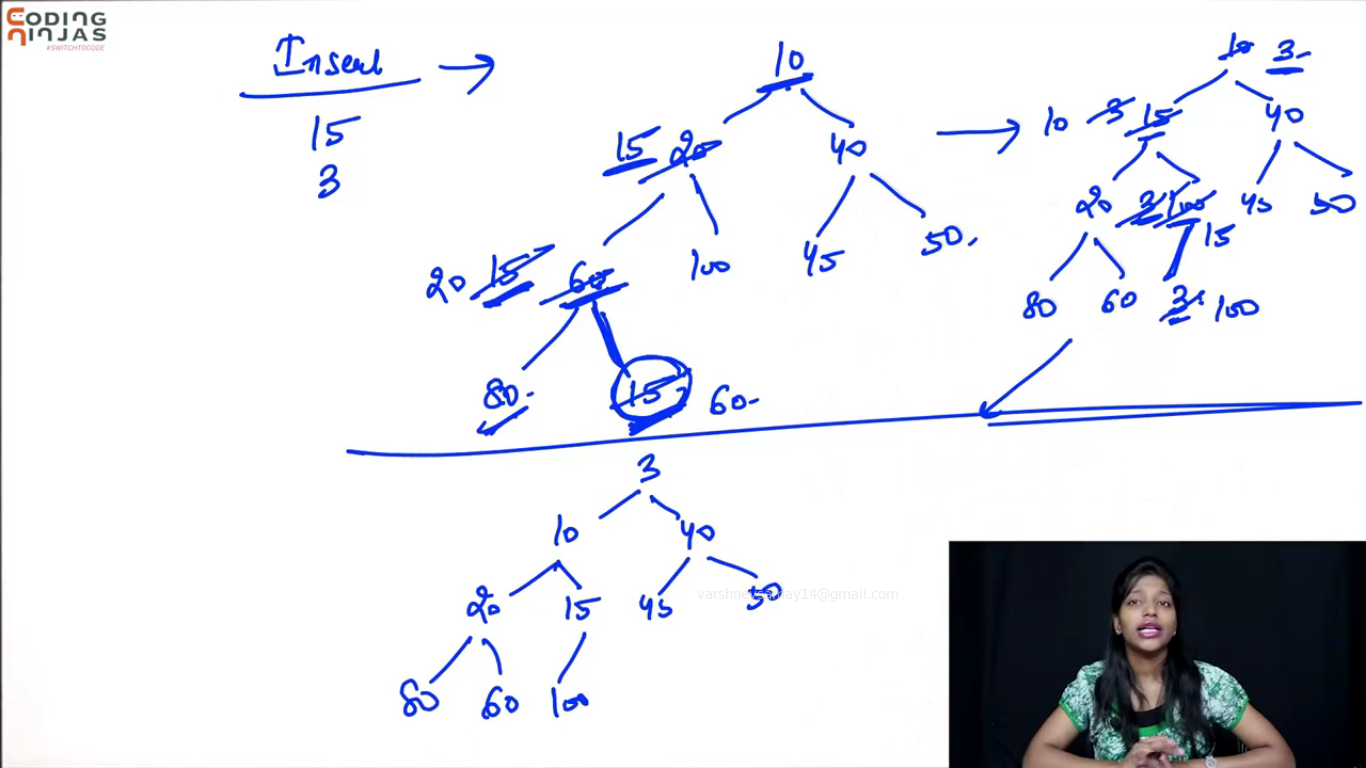 CODING
NINJAS
#SWITCHTOCODE
Insert
15
3
10
15 20 40
20 15 60 100 45 50
80 15 60
10 3
10 3 15 40
20 3 100 15 45 50
80 60 3 100
3
10 40
20 15 45 50
80 60 100